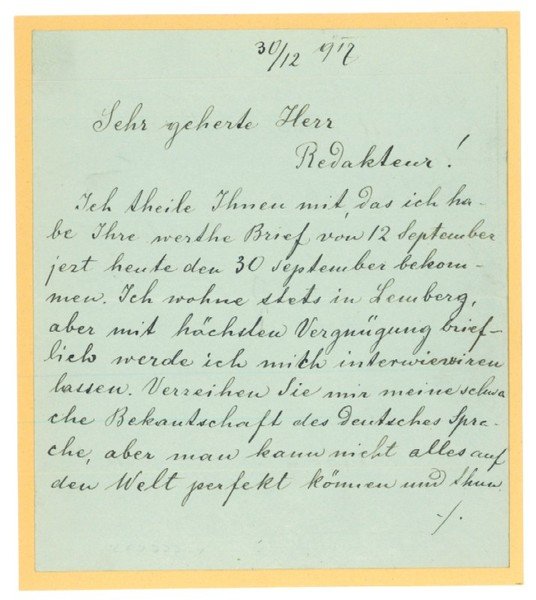 30/12 917
Sehr geherte Herr
Redakteur!
Ich theile Ihnen mit, das ich ha-
be Ihre werthe Brief von 12 September
jezt heute den 30 September bekom-
men. Ich wohne stets in Lemberg,
aber mit höchsten Vergnügung brief-
lich werde ich mich interwiewiren
lassen. Verzeihen Sie mir meine schwa
che Bekantschaft des Deutsches Spra-
che, aber man kann nicht alles auf
den Welt perfekt können und thun
./.